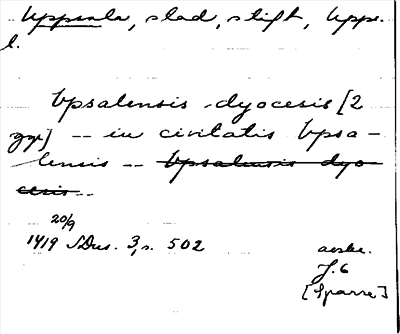 Uppsala, stad, stift, Uppl.
l.
Vpsalensis dyocesis [2
ggr] -- in civitatis Vpsa-
lensis -- Vpsalensis dyo-
cesis --
20/9
1419 SDns. 3, s. 502
avskr.
J. 6
[Sparre]